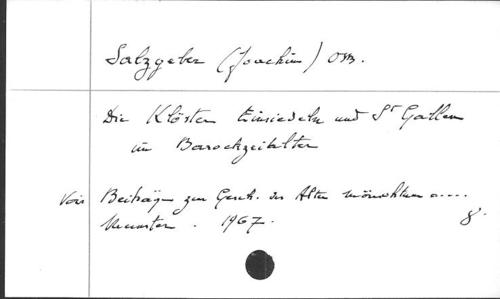 Salzgeber (Joachim) OSB.
Die Klöster Einsiedeln und St Gallen
im Barockzeitalter
Voir Beiträge zur Gesch. des Alten Mönchtums ....
Münster . 1967. 8°